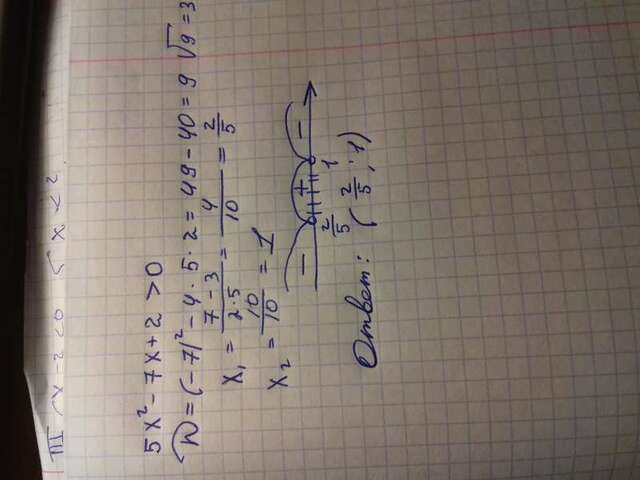 III x-2<0 5 x<2
5x²-7x+2>0
D=(-7)²-4·5·2=49-40=9 √9=3
x₁ = (7-3)/(2·5) = 4/10 = 2/5
x₂ = 10/10 = 1
- + -
2/5 1
Ответ: (2/5; 1)